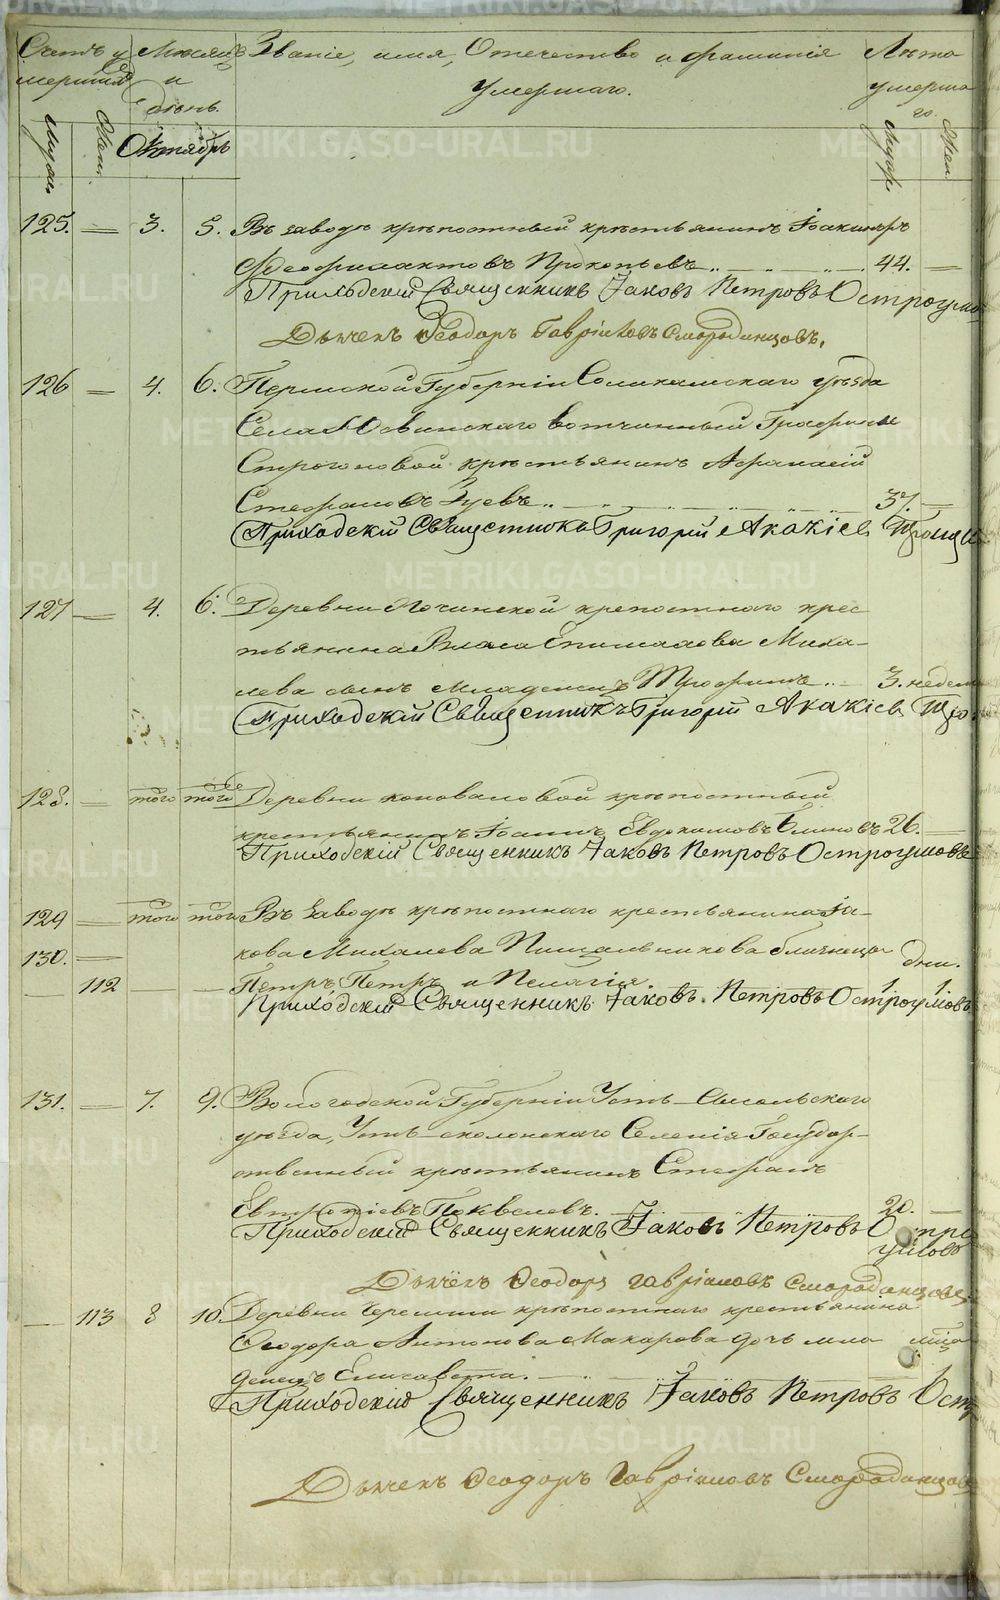 Счетъ у Мѣсяцъ Званіе, имя, Отечество и фамилія Лѣта
мершихъ и Умершаго. умерша
день. го.
Муж. Жен. Октябрь Муж. Жен.
125. — 3. 5. Въ заводѣ крѣпостный крестьянинъ Іоакимъ
Феофилактовъ Прокопьевъ 44. —
Приходскій Священникъ Іаковъ Петровъ Остроумо
Дьячекъ Ѳеодоръ Гавріиловъ Смородинцовъ.
126 — 4. 6. Пермской Губерніи Соликамскаго уѣзда
Села Юсвинскаго вотчинный Графини
Строгоновой крестьянинъ Афанасій
Стефановъ Зуевъ 37. —
Приходскій Священникъ Григорій Акакіев
127 — 4. 6. Деревни Починской крепостнаго крес
тьянина Власа Епимахова Миха-
лева сынъ младенецъ Трофимъ 3. недели
Приходскій Священникъ Григорій Акакіев
128. — того того Деревни Коноваловой крѣпостный
крестьянинъ Іоаннъ Евдокимовъ Блиновъ 26. —
Приходскій Священникъ Іаковъ Петровъ Остроумовъ
129 — того того Въ Заводѣ крѣпостнаго крестьянина Іа-
130. — кова Михалева Пищальникова близнецы дни.
— 112 — — Петръ, Петръ и Пелагія. 1 1.
Приходскій Священникъ Іаковъ Петровъ Остроумовъ
131. — 7. 9. Вологодской Губерніи Усть-Сысольскаго
уѣзда, Усть- Селенія Государ-
ственный крестьянинъ Стефанъ
20. —
Приходскій Священникъ Іаковъ Петровъ Остро
умовъ
Дьячекъ Ѳеодоръ Гавріиловъ Смородинцовъ
— 113 8 10. Деревни Черемши крѣпостнаго крестьянина
Ѳеодора Антонова Макарова дочь мла
денецъ Елисавета.
Приходскій Священникъ Іаковъ Петровъ Остр
Дьячекъ Ѳеодоръ Гавріиловъ Смородинцов
METRIKI.GASO-URAL.RU